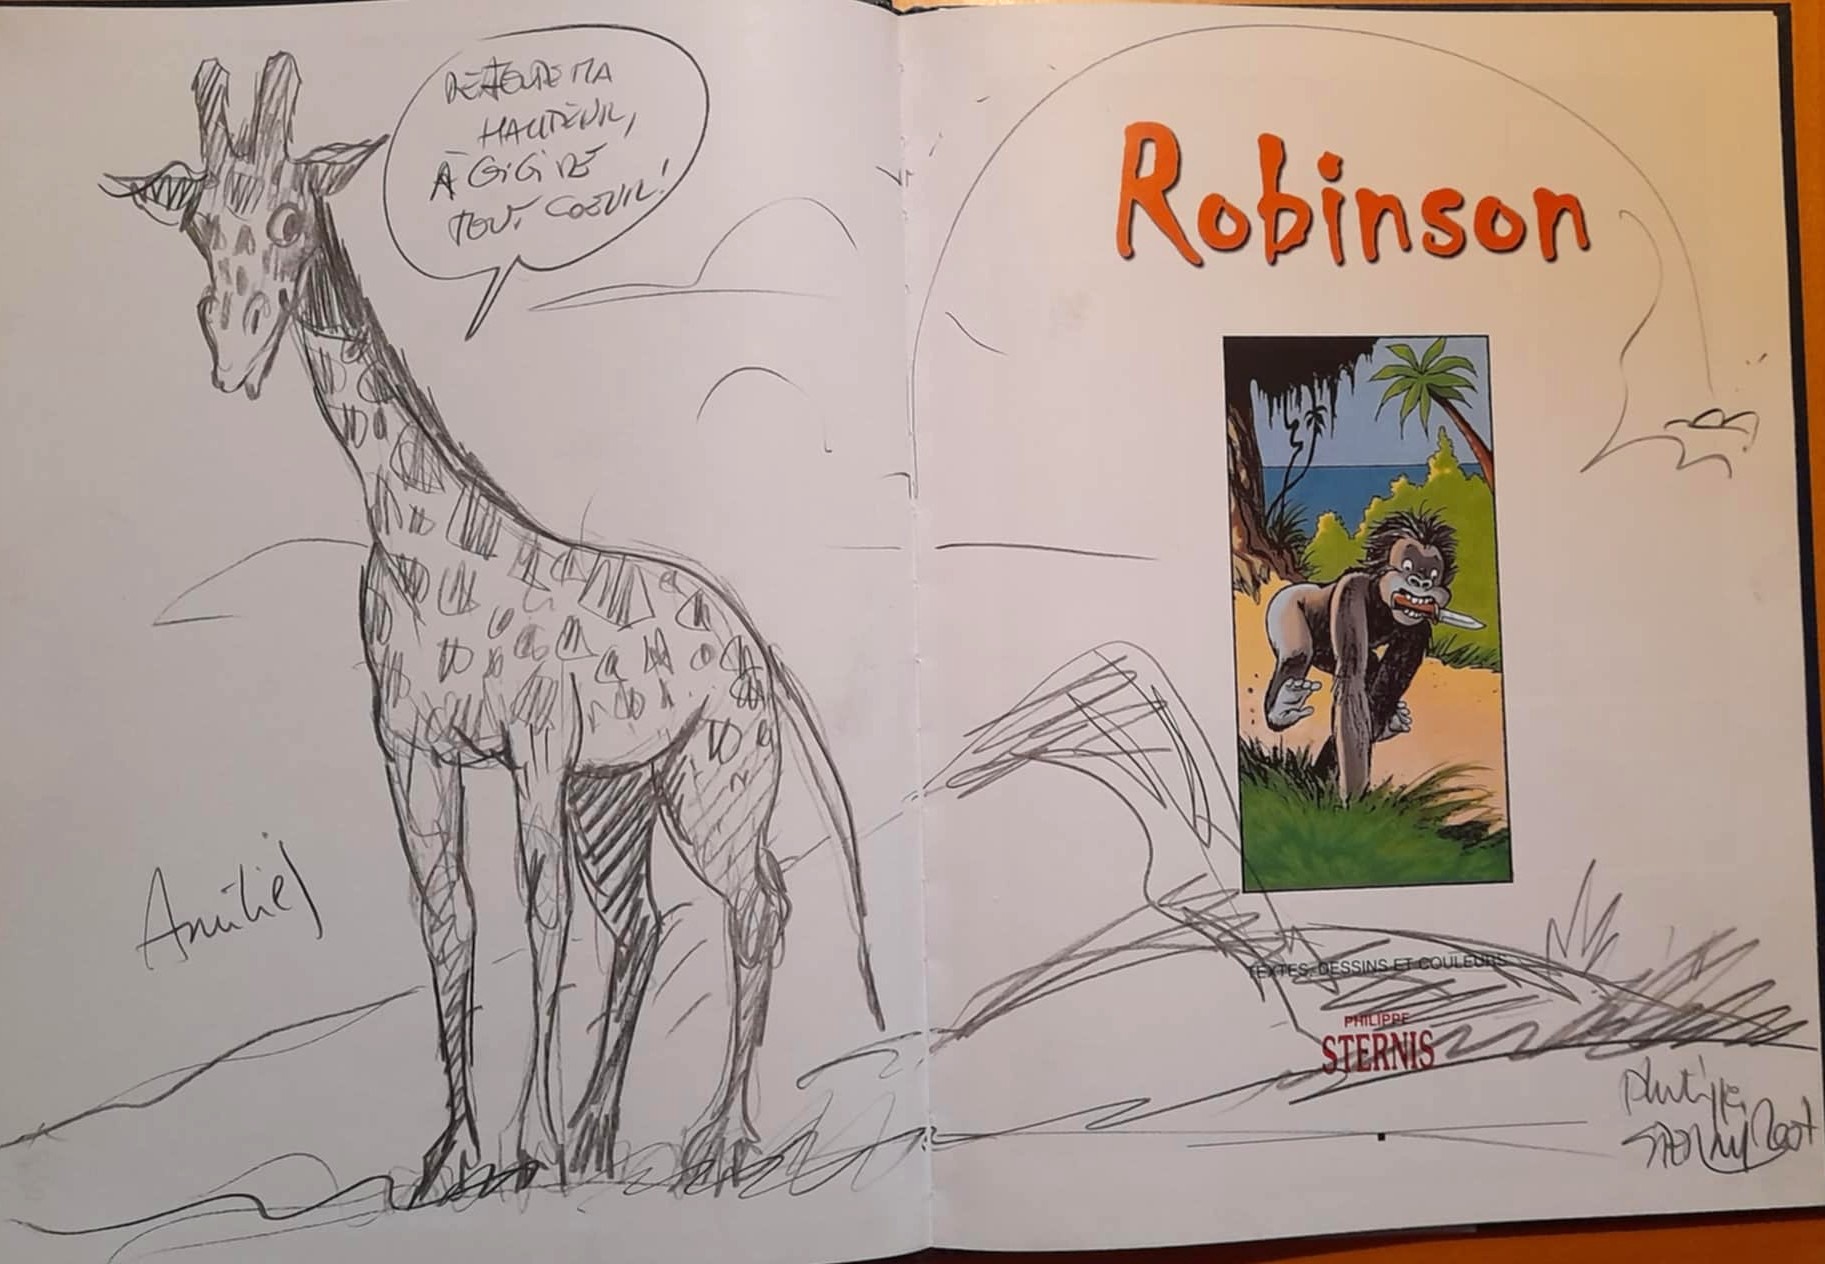 DE TOUTE MA
HAUTEUR,
À GIGI DE
TOUT COEUR!
Amitiés
Robinson
TEXTES, DESSINS ET COULEURS
PHILIPPE
STERNIS
Philippe
STERNIS